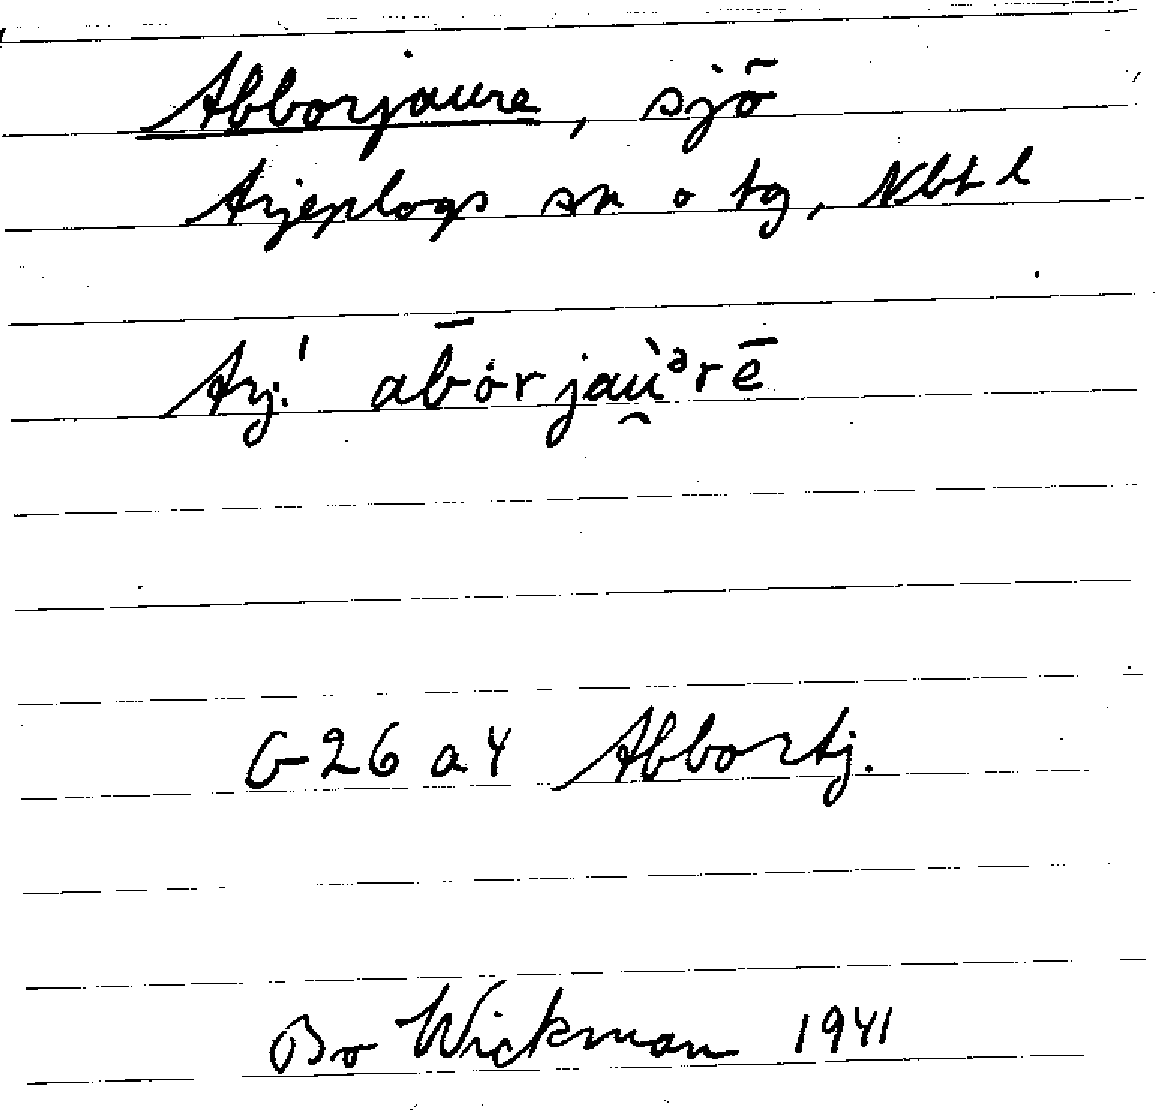 Abborjaure, sjö
Arjeplogs sn o tg, Nbt l
Arj.! ab̄ȯrjaù̯ᵊrē
G 26 a 4 Abbortj.
Bo Wickman 1941